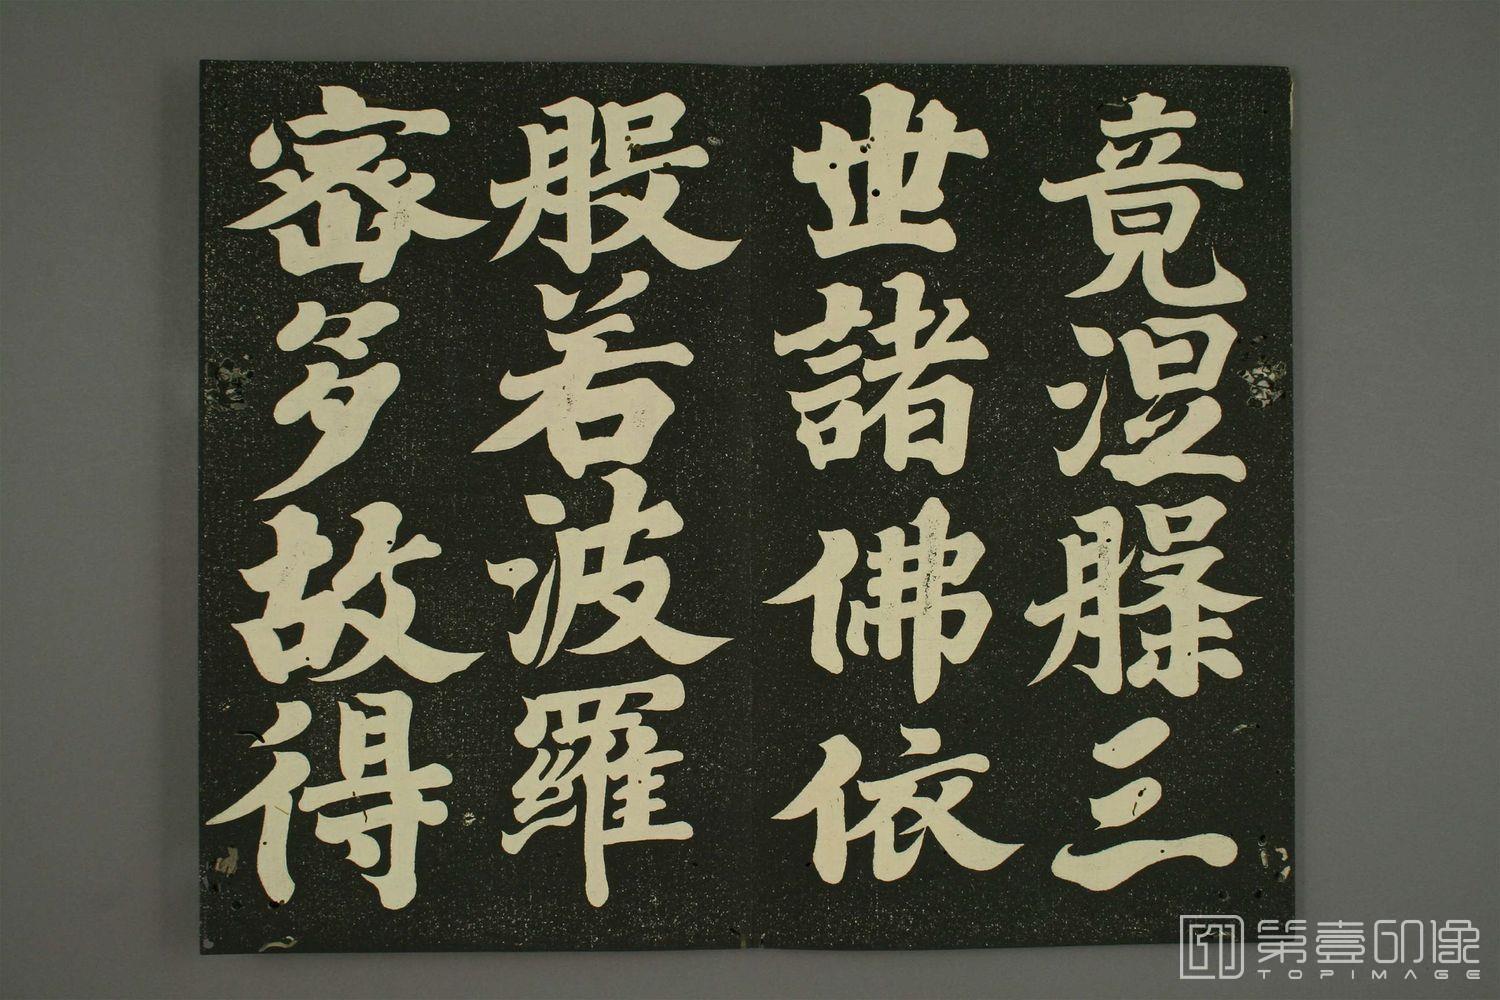 竟涅槃三
世諸佛依
般若波羅
密多故得
第壹印像
TOPIMAGE